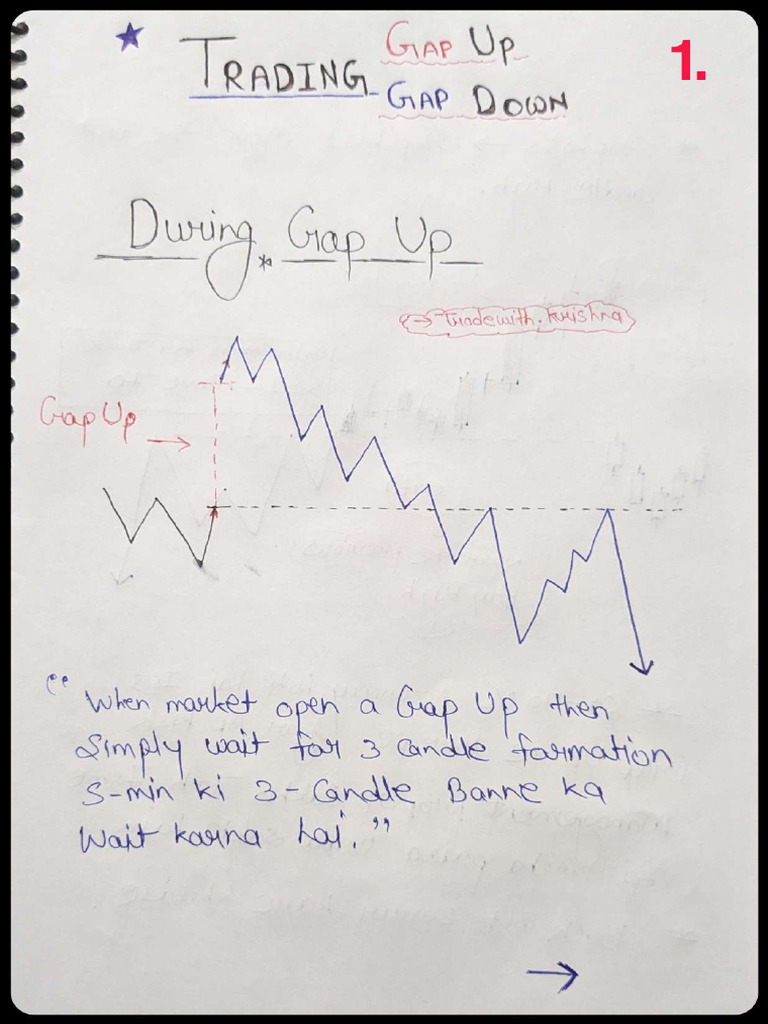 ★ TRADING GAP UP
GAP DOWN
1.
During Gap Up
→ Tradewith.krishna
Gap Up →
“When market open a Gap Up then
Simply wait for 3 candle formation
5-min ki 3-Candle Banne ka
Wait karna hai.”
→